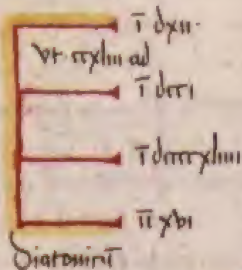 ī dxii·
vt· ccxliii ad
ī dcci
ī dccccxliiii
īī xvi
diatonicū